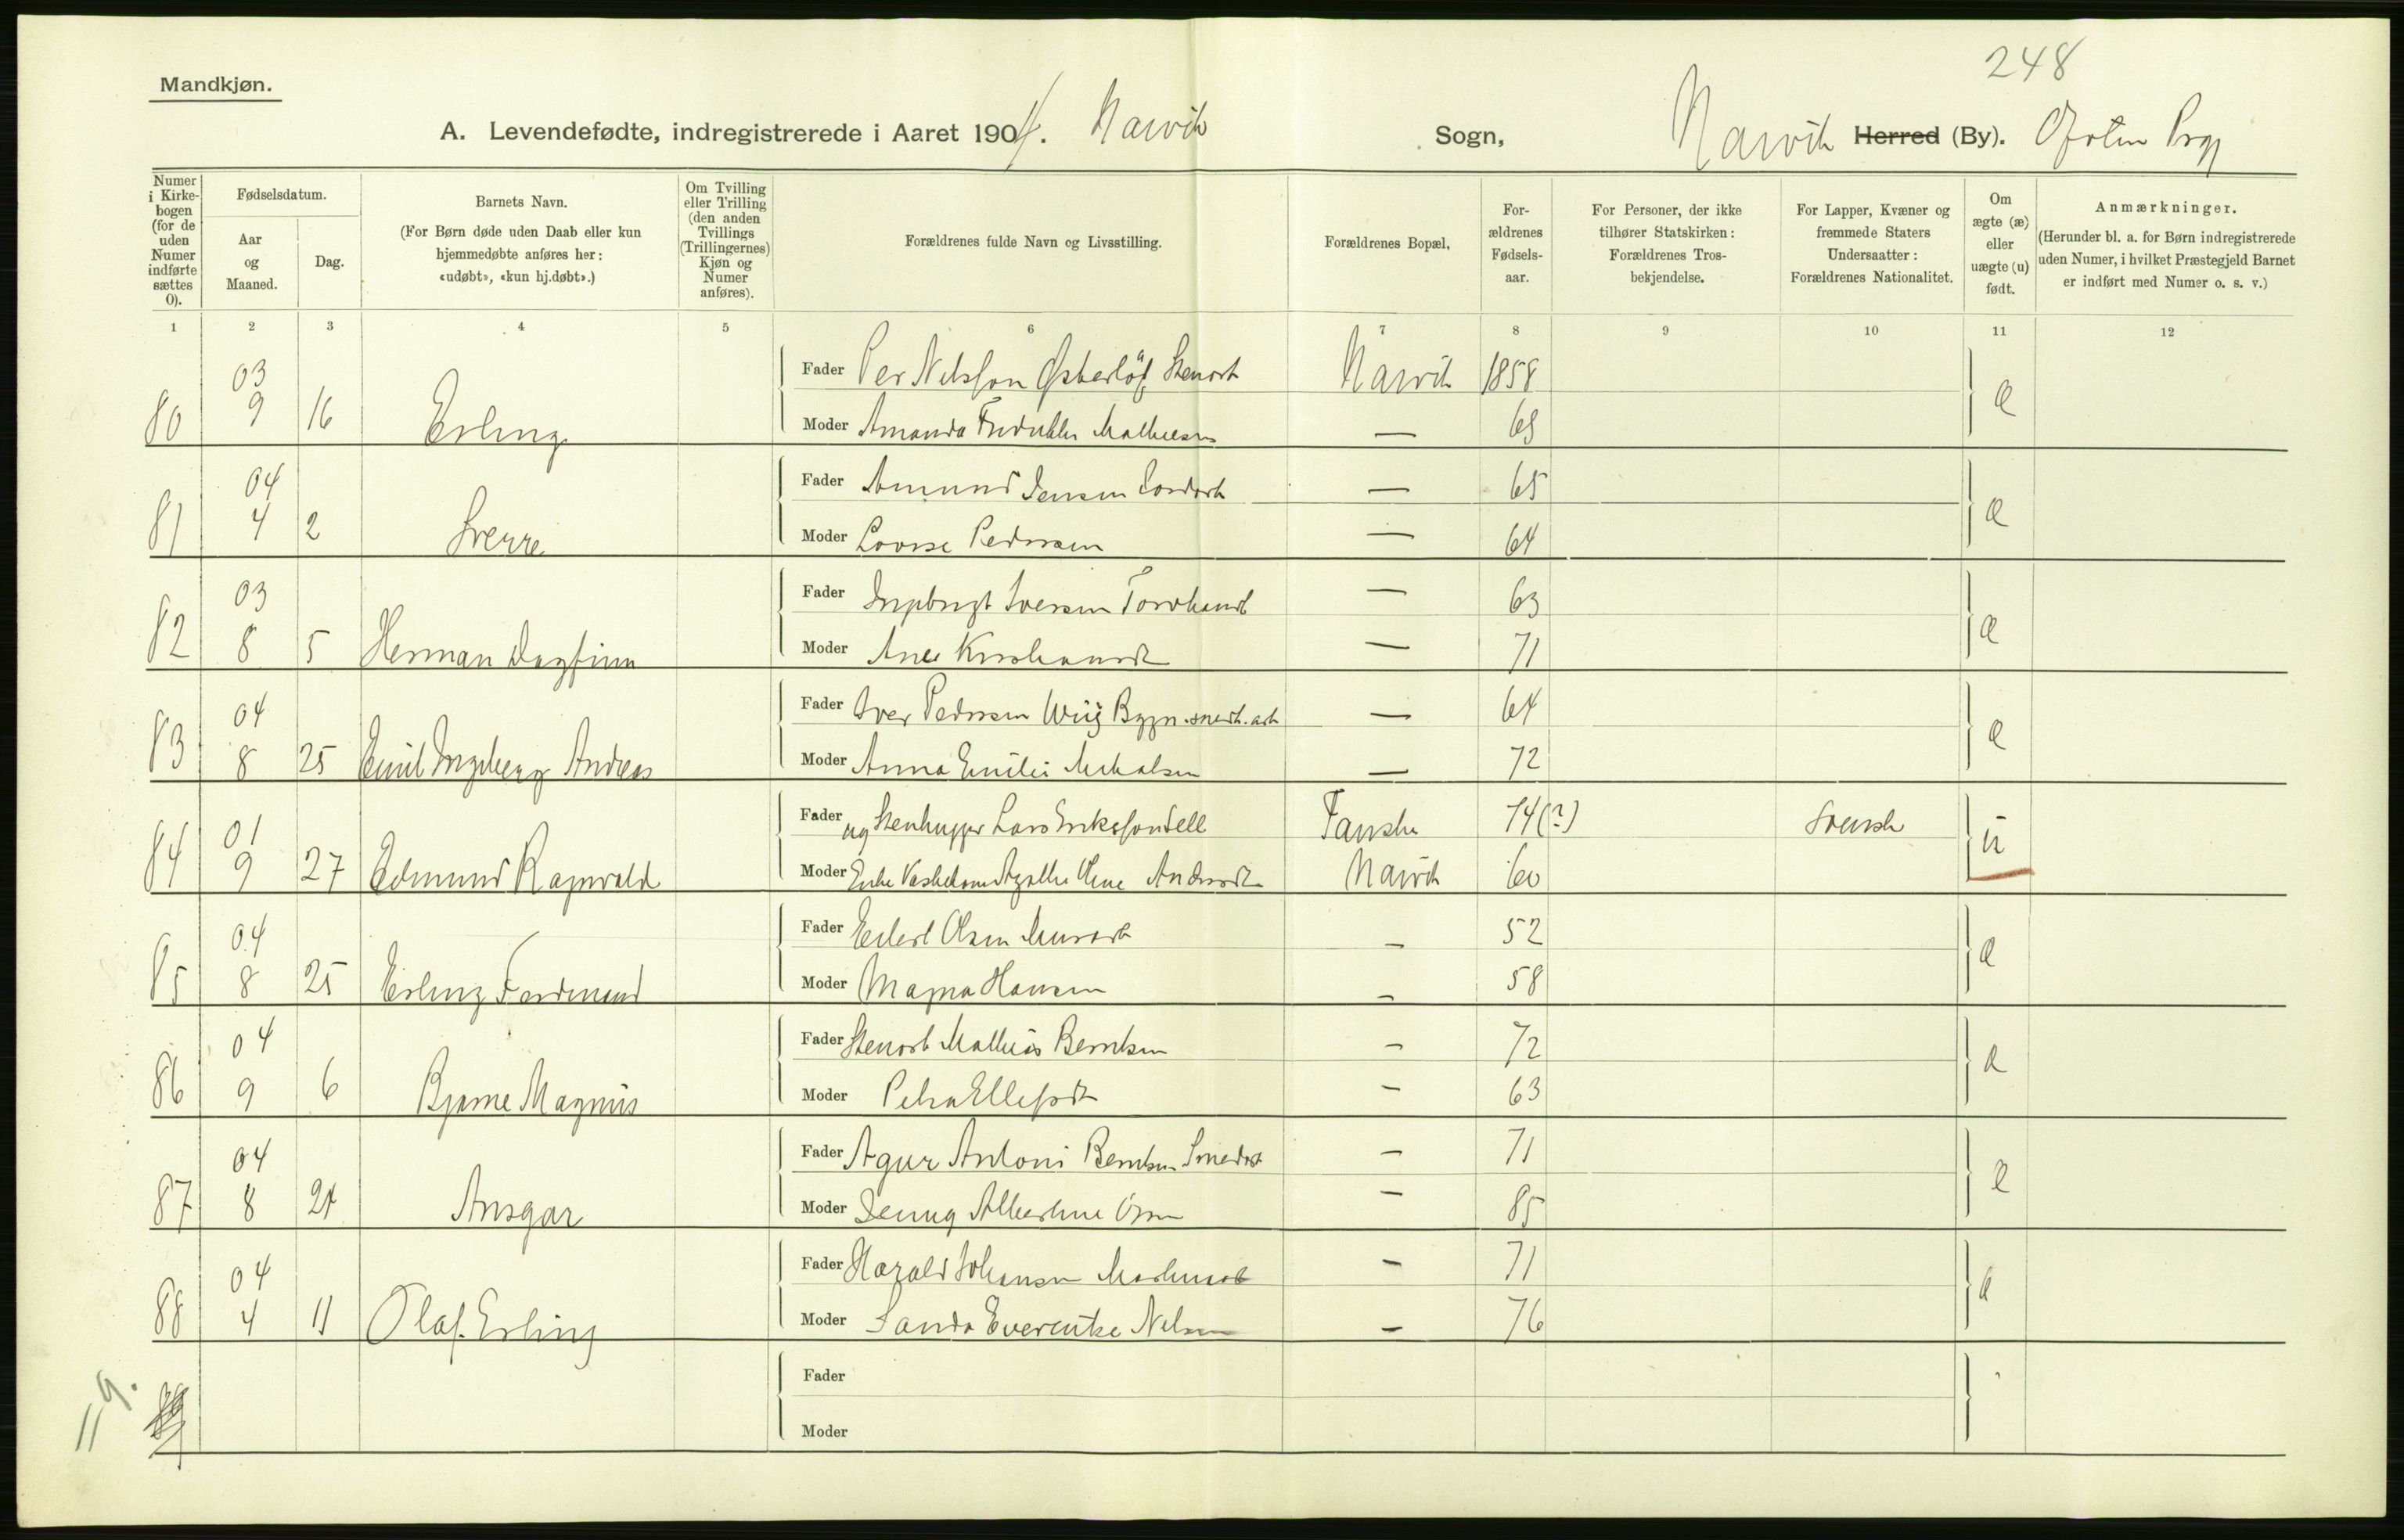 248
Mandkjøn.
A. Levendefødte, indregistrerede i Aaret 1904. Narvik Sogn, Narvik Herred (By). Ofoten Prgj
Numer i Kirkebogen (for de uden Numer indførte sættes 0).
Fødselsdatum.
Aar og Maaned.
Dag.
Barnets Navn.
(For Børn døde uden Daab eller kun hjemmedøbte anføres her: «udøbt», «kun hj.døbt».)
Om Tvilling eller Trilling (den anden Tvillings (Trillingernes) Kjøn og Numer anføres).
Forældrenes fulde Navn og Livsstilling.
Forældrenes Bopæl,
Forældrenes Fødselsaar.
For Personer, der ikke tilhører Statskirken: Forældrenes Trosbekjendelse.
For Lapper, Kvæner og fremmede Staters Undersaatter: Forældrenes Nationalitet.
Om ægte (æ) eller uægte (u) født.
Anmærkninger.
(Herunder bl. a. for Børn indregistrerede uden Numer, i hvilket Præstegjeld Barnet er indført med Numer o. s. v.)
1 2 3 4 5 6 7 8 9 10 11 12
80 03 9 16 Erling Fader Per Nilsson Østerlöf, Stenarb Narvik 1858 æ
Moder Amanda Mathiesen — 68
81 04 4 2 Sverre Fader Amund Jensen — 65 æ
Moder Lovise Pedersen — 64
82 03 8 5 Herman Dagfinn Fader Ingebrigt Iversen — 63 æ
Moder Ane — 71
83 04 8 25 Emil Ingeberg Andreas Fader Iver Pedersen Wiig — 64 æ
Moder Anna Emilie — 72
84 01 9 27 Edmund Ragnvald Fader ug Stenhugger Lars Tanske 74(?) Svensk u
Moder Enke Oline Narvik 60
85 04 8 25 Erling Ferdinand Fader Edert Olsen Murarb — 52 æ
Moder Magna Hansen — 58
86 04 9 6 Bjarne Magnus Fader Stenarb Mathias Berntsen — 72 æ
Moder Petra — 63
87 04 8 24 Ansgar Fader Agur Antoni Berntsen Smedarb — 71 æ
Moder Jenny Albertine — 85
88 04 4 11 Olaf Erling Fader Harald Johansen — 71 æ
Moder Sanda Nilsen — 76
Fader
Moder
9.
11